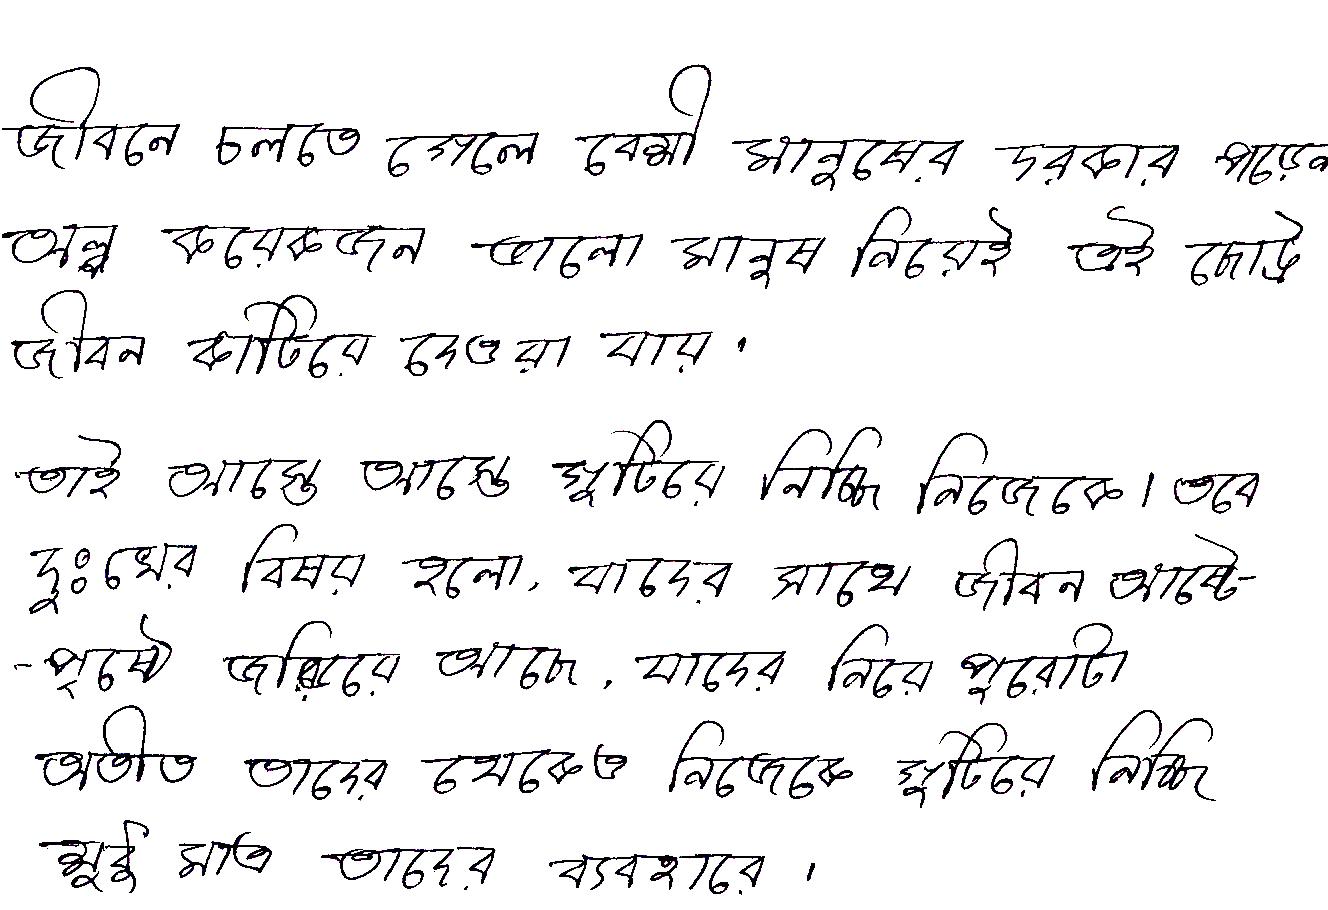 জীবনে চলতে গেলে বেশী মানুষের দরকার পড়েনা
অল্প কয়েকজন ভালো মানুষ নিয়েই এই ছোট্ট
জীবন কাটিয়ে দেওয়া যায়।
তাই আস্তে আস্তে গুটিয়ে নিচ্ছি নিজেকে। তবে
দুঃখের বিষয় হলো, যাদের সাথে জীবন আষ্টে-
-পৃষ্টে জরিয়ে আছে, যাদের নিয়ে পুরোটা
অতীত তাদের থেকেও নিজেকে গুটিয়ে নিচ্ছি
শুধু মাত্র তাদের ব্যবহারে।